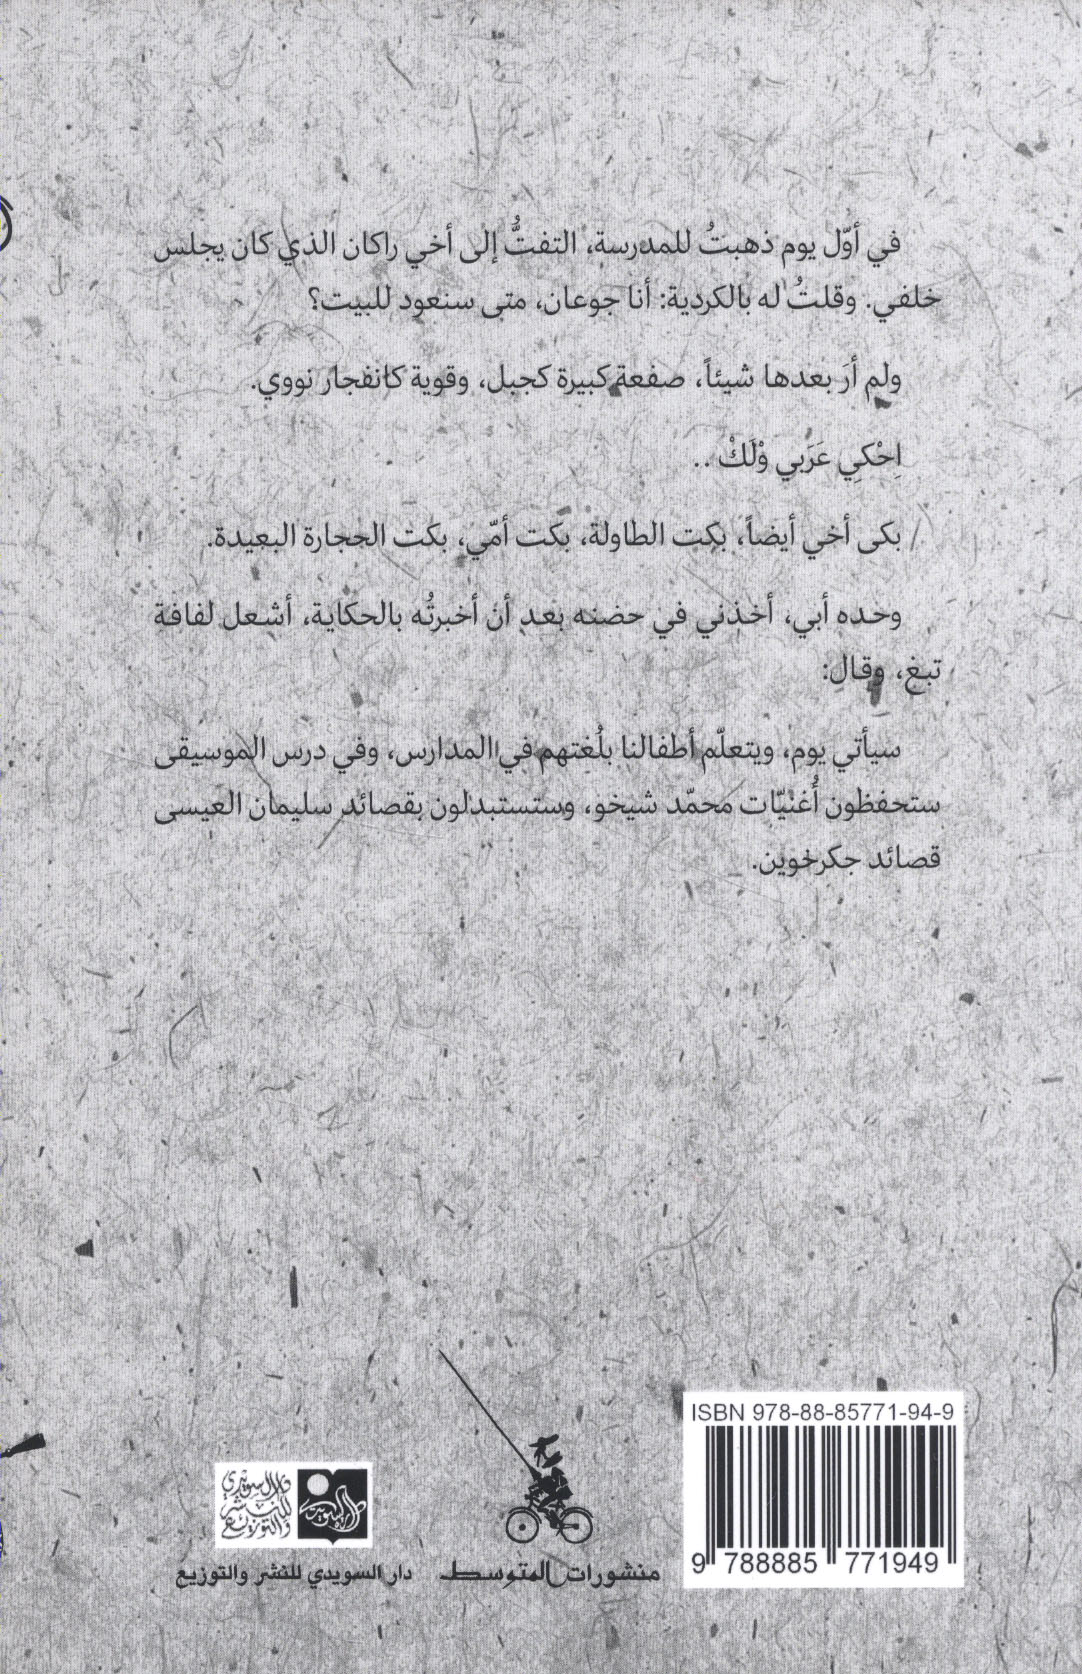 في أوّل يوم ذهبتُ للمدرسة، التفتُّ إلى أخي راكان الذي كان يجلس
خلفي. وقلتُ له بالكردية: أنا جوعان، متى سنعود للبيت؟
ولم أرَ بعدها شيئاً، صفعة كبيرة كجبل، وقوية كانفجار نووي.
اِحْكِي عَرَبي وْلَكْ ..
بكى أخي أيضاً، بكت الطاولة، بكت أمّي، بكت الحجارة البعيدة.
وحده أبي، أخذني في حضنه بعد أن أخبرتُه بالحكاية، أشعل لفافة
تبغ، وقال:
سيأتي يوم، ويتعلّم أطفالنا بلُغتهم في المدارس، وفي درس الموسيقى
ستحفظون أُغنيّات محمّد شيخو، وستستبدلون بقصائد سليمان العيسى
قصائد جكرخوين.
ISBN 978-88-85771-94-9
9 788885 771949
دار السويدي للنشر والتوزيع
منشورات المتوسط
دار السويدي للنشر والتوزيع